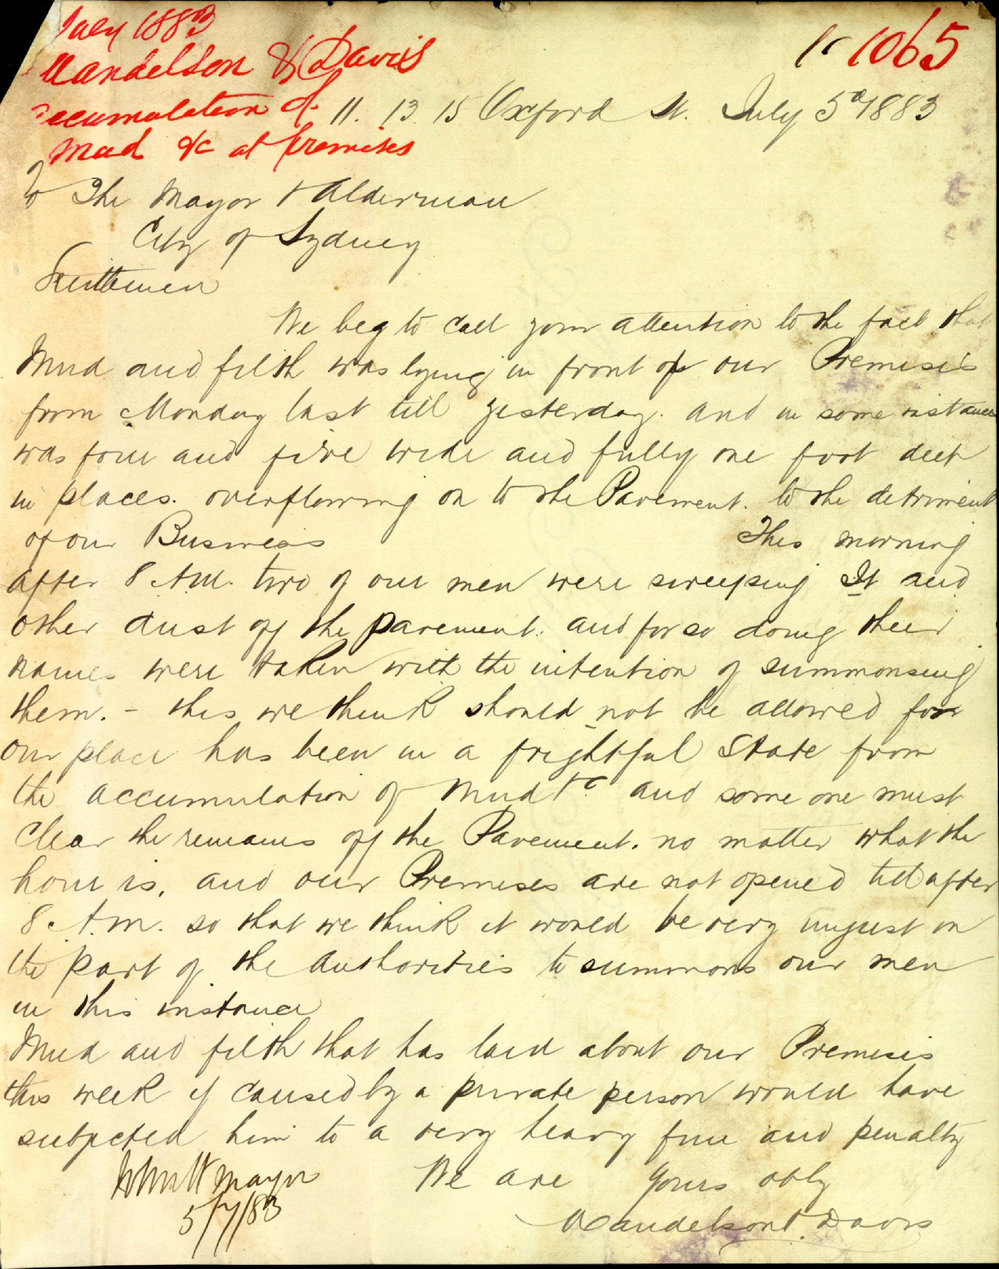 July 1883
Mandelson & Davis
accumulation of
mud &c at premises
1065
11. 13. 15 Oxford St. July 5th 1883
To The Mayor & Alderman
City of Sydney
Gentlemen
We beg to call your attention to the fact that
Mud and filth was lying in front of our Premises
from Monday last till yesterday. and in some instances
was four and five wide and fully one foot deep
in places. overflowing on to the Pavement. to the detriment
of our Business This morning
after 8 A.M. two of our men were sweeping It and
other dust off the pavement. and for so doing their
names were taken with the intention of summonsing
them. – this we think should not be allowed for
our place has been in a frightful State from
the accumulation of Mud &c and some one must
Clear the remains off the Pavement. no matter what the
hour is, and our Premises are not opened till after
8 A.M. so that we think it would be very unjust on
the part of the authorities to summons our men
in this instance
Mud and filth that has laid about our Premises
this week if caused by a private person would have
subjected him to a very heavy fine and penalty
We are Yours obly
Mandelson & Davis
Mayor
5/7/83